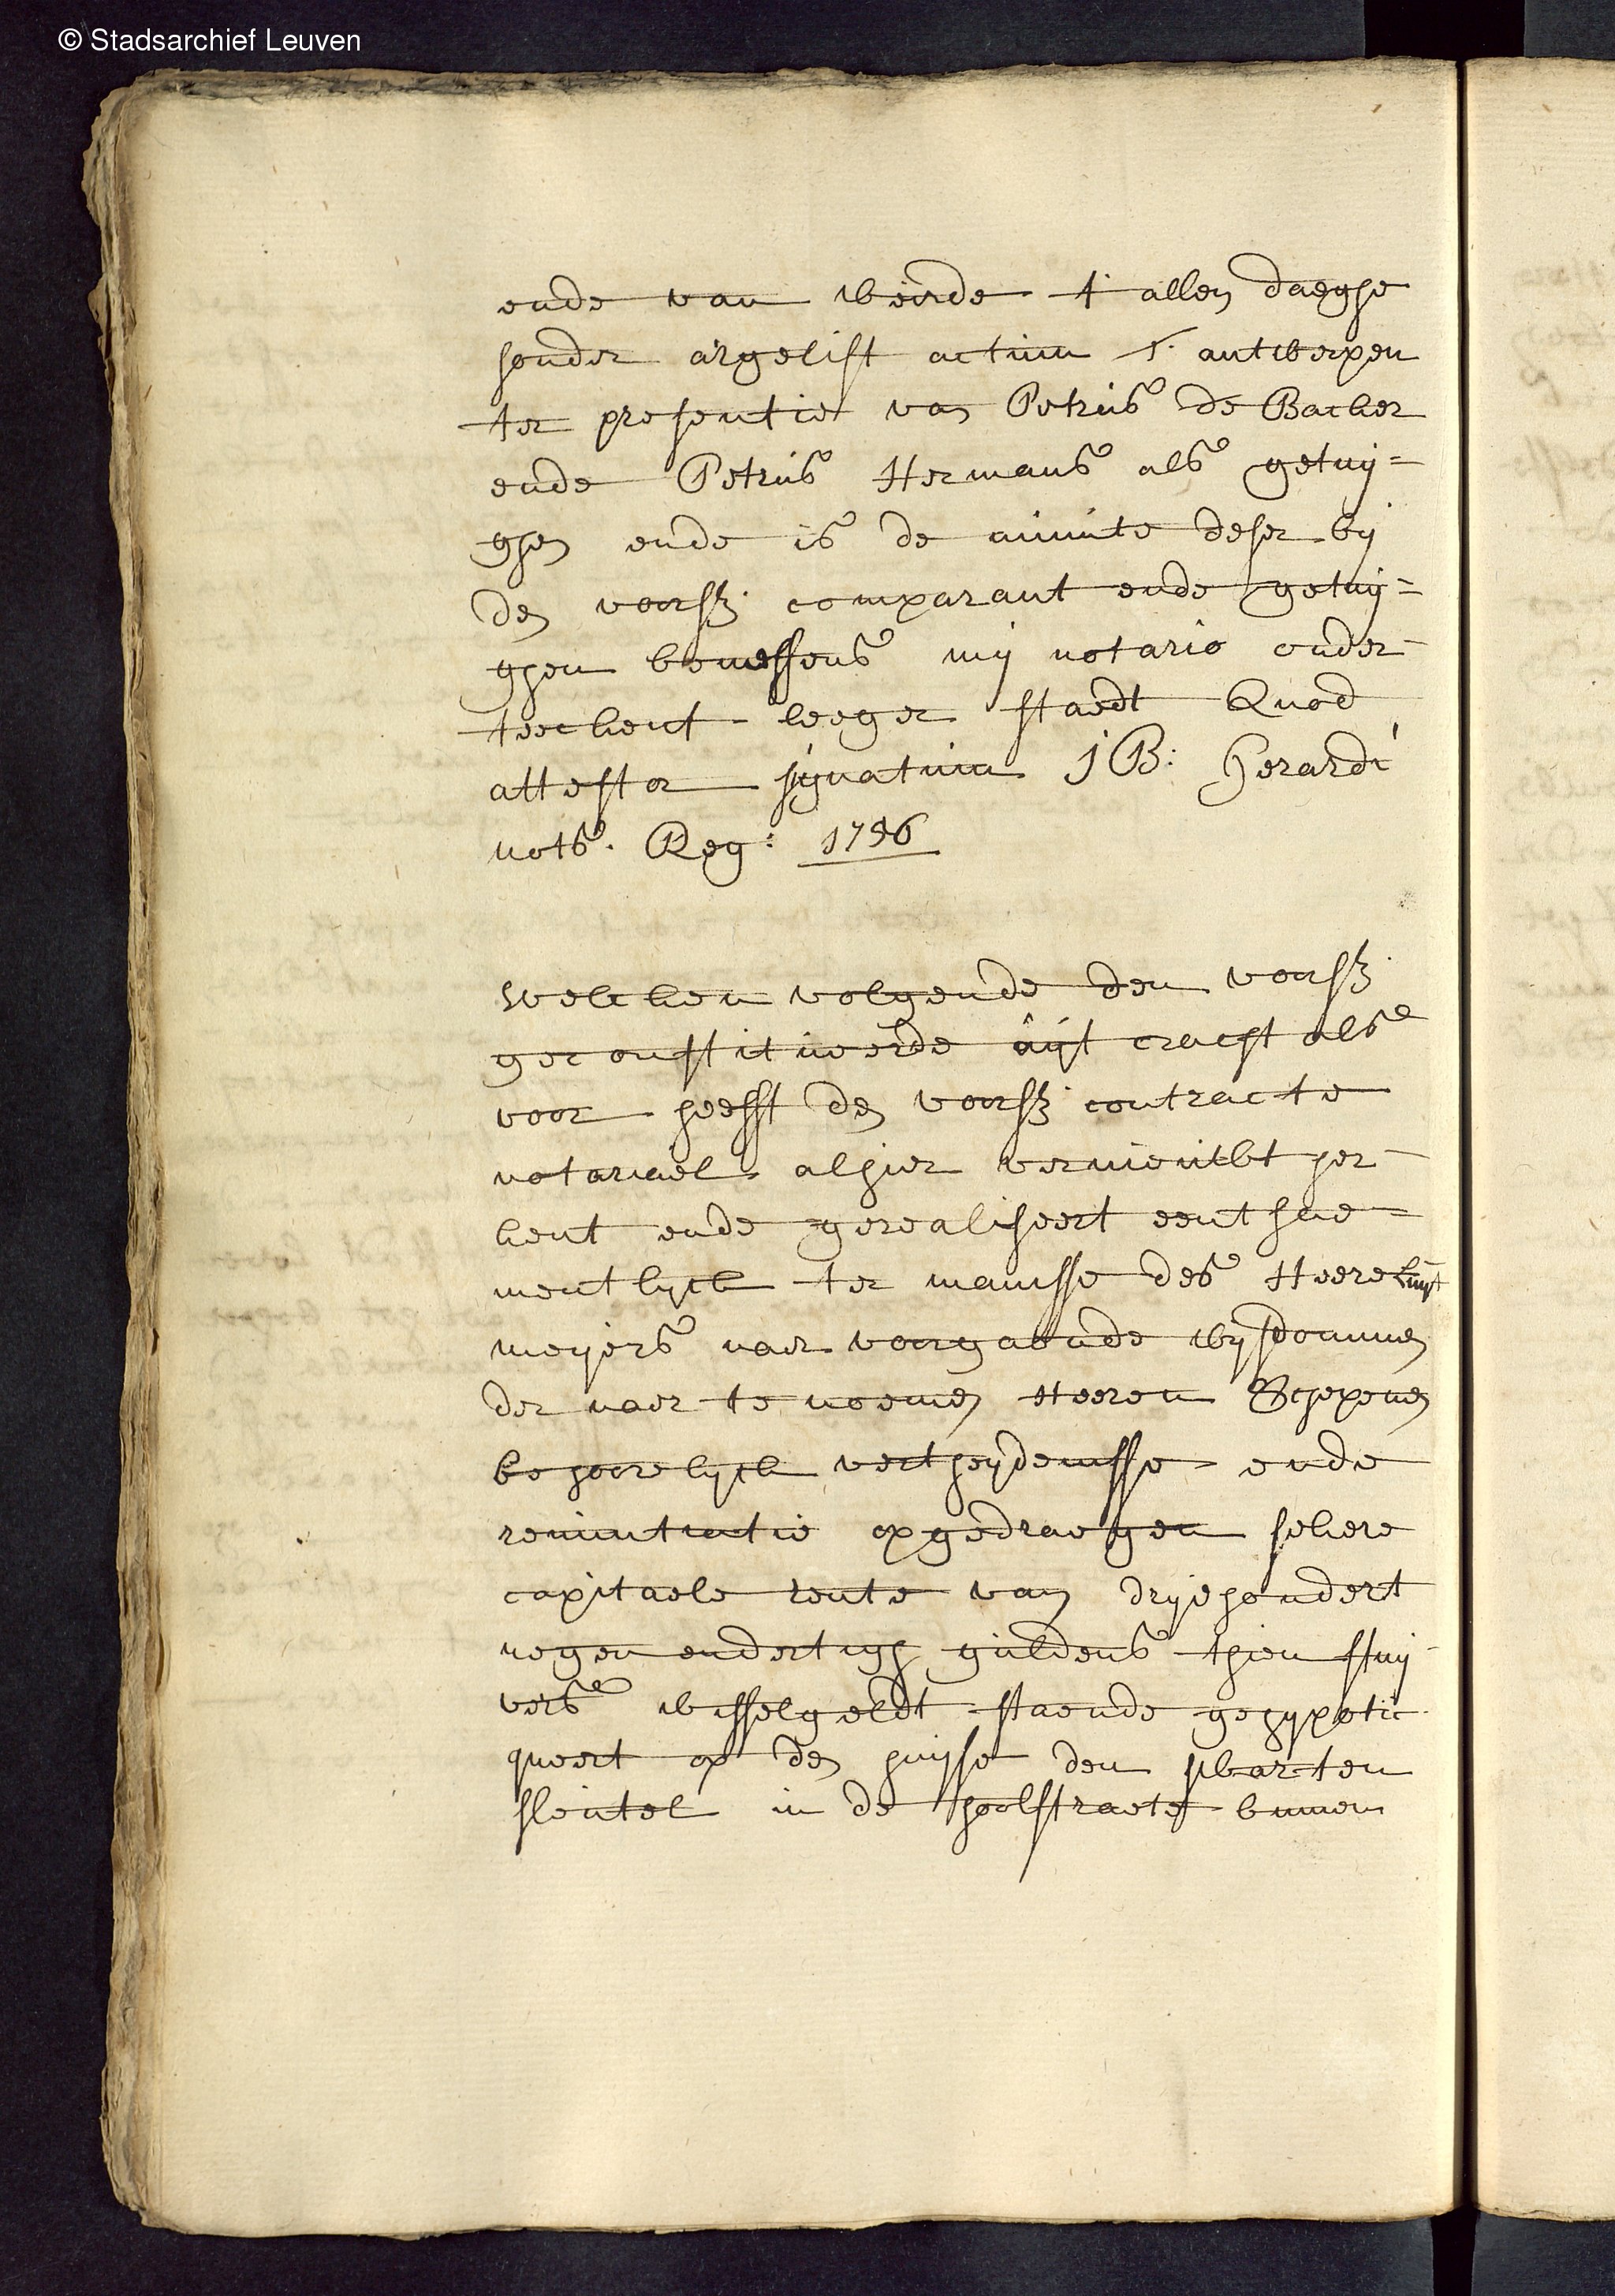 © Stadsarchief Leuven
ende van weirde t' allen daeghe
sonder argelist actum t' antwerpen
ter presentie van Petrus de Backer
ende Petrus Hermans als getuy=
ghen ende is de minute deser by
den voorss. comparant ende getuy=
ghen beneffens my notario onder-
teekent leeger staedt Quod
attestor signatum J B: Gerardi
nots. Reg: 1756
Welcken volgende den voorss.
geconstitueerde uyt cracht als
voor heefft den voorss. contracte
notariael alhier vernieuwt her-
kent ende gerealiseert eentsae=
mentlyck ter manisse des Heere
meyers naer voorgaende wysdomme
der naer te noemen Heeren Schepenen
behoorelyck vertheydenisse ende
renuntiatie opgedraegen sekere
capitaele rente van dryehondert
negenendertigh guldens thien stuy-
vers wisselgeldt staende gehypotic-
queert op den huyse den swarten
sleutel in de hoolstraete binnen